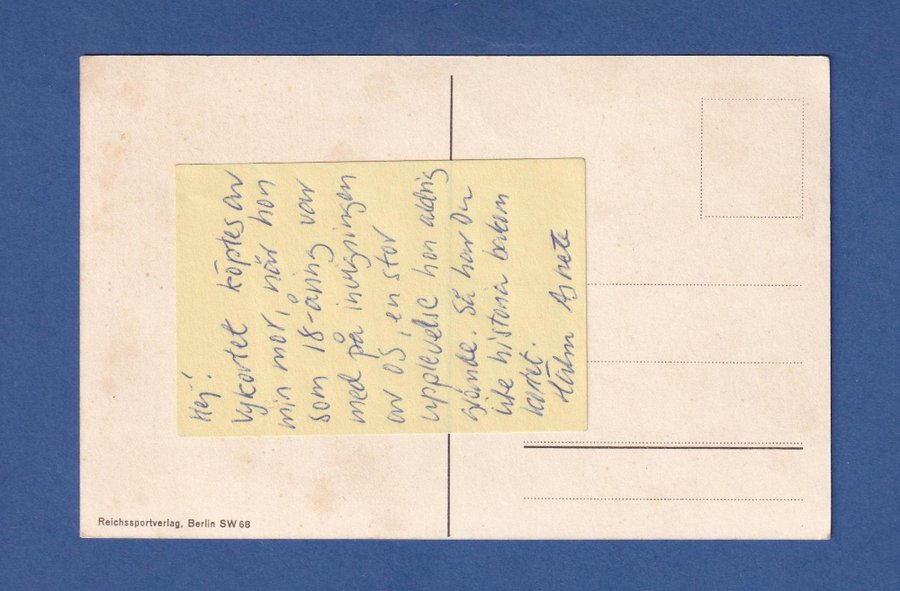 Hej!
Vykortet köptes av
min mor, när hon
som 18-åring var
med på invigningen
av OS, en stor
upplevelse hon aldrig
glömde. Så har Du
lite historia bakom
kortet.
Hälsn Agneta
Reichssportverlag, Berlin SW 68